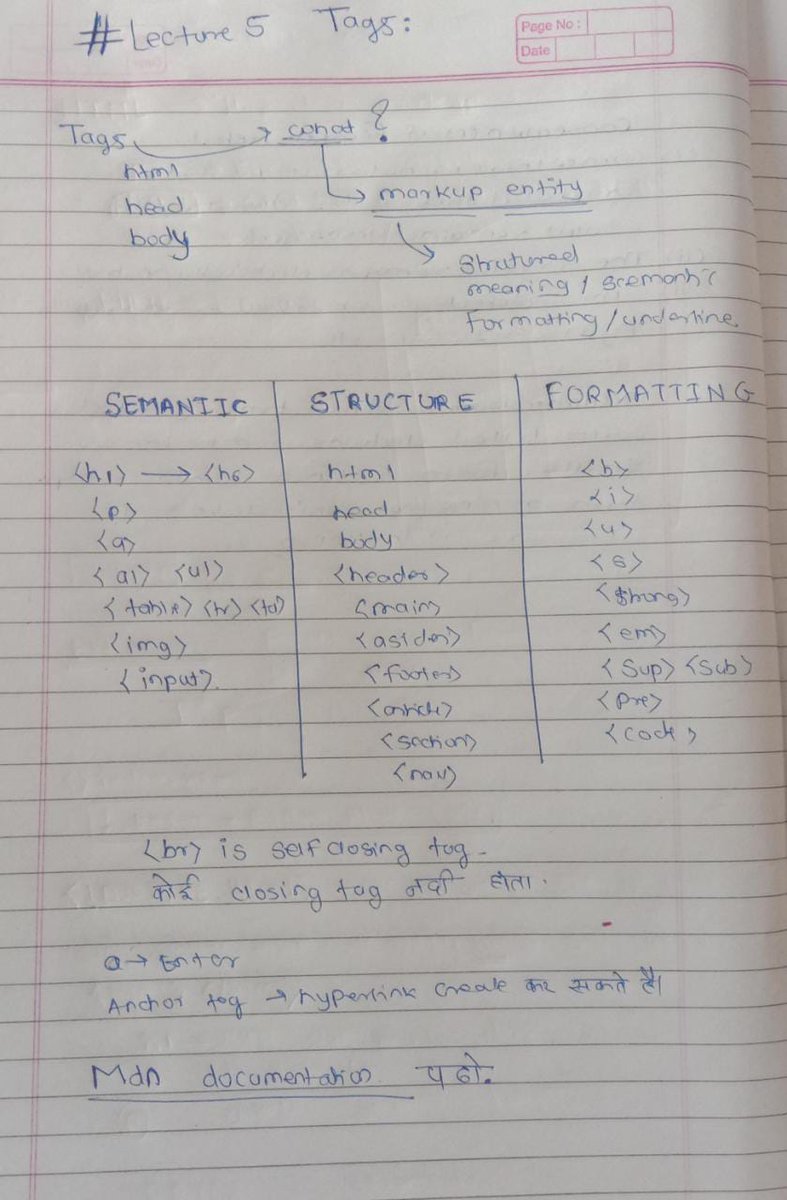 # Lecture 5 Tags:
Page No :
Date
Tags → what ?
html
head
body
markup entity
Strutured
meaning / scemantic
Formatting / underline
SEMANTIC
<h1> → <h6>
<p>
<a>
<ol> <ul>
<table> <tr> <td>
<img>
<input>
STRUCTURE
html
head
body
<header>
<main>
<asider>
<footer>
<article>
<section>
<nav>
FORMATTING
<b>
<i>
<u>
<s>
<strong>
<em>
<Sup> <Sub>
<Pre>
<code>
<br> is self closing tag -
कोई closing tag नही होता .
a → Enter
Anchor tag → hyperlink create कर सकते है।
Mdn documentation पढो.